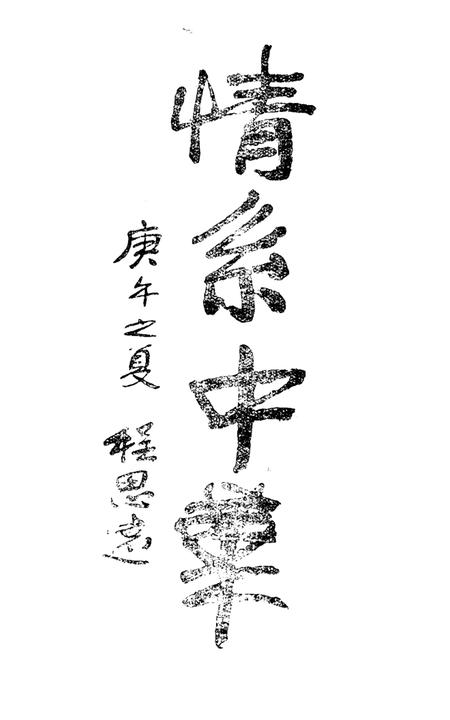 情系中華
庚午之夏
程思遠